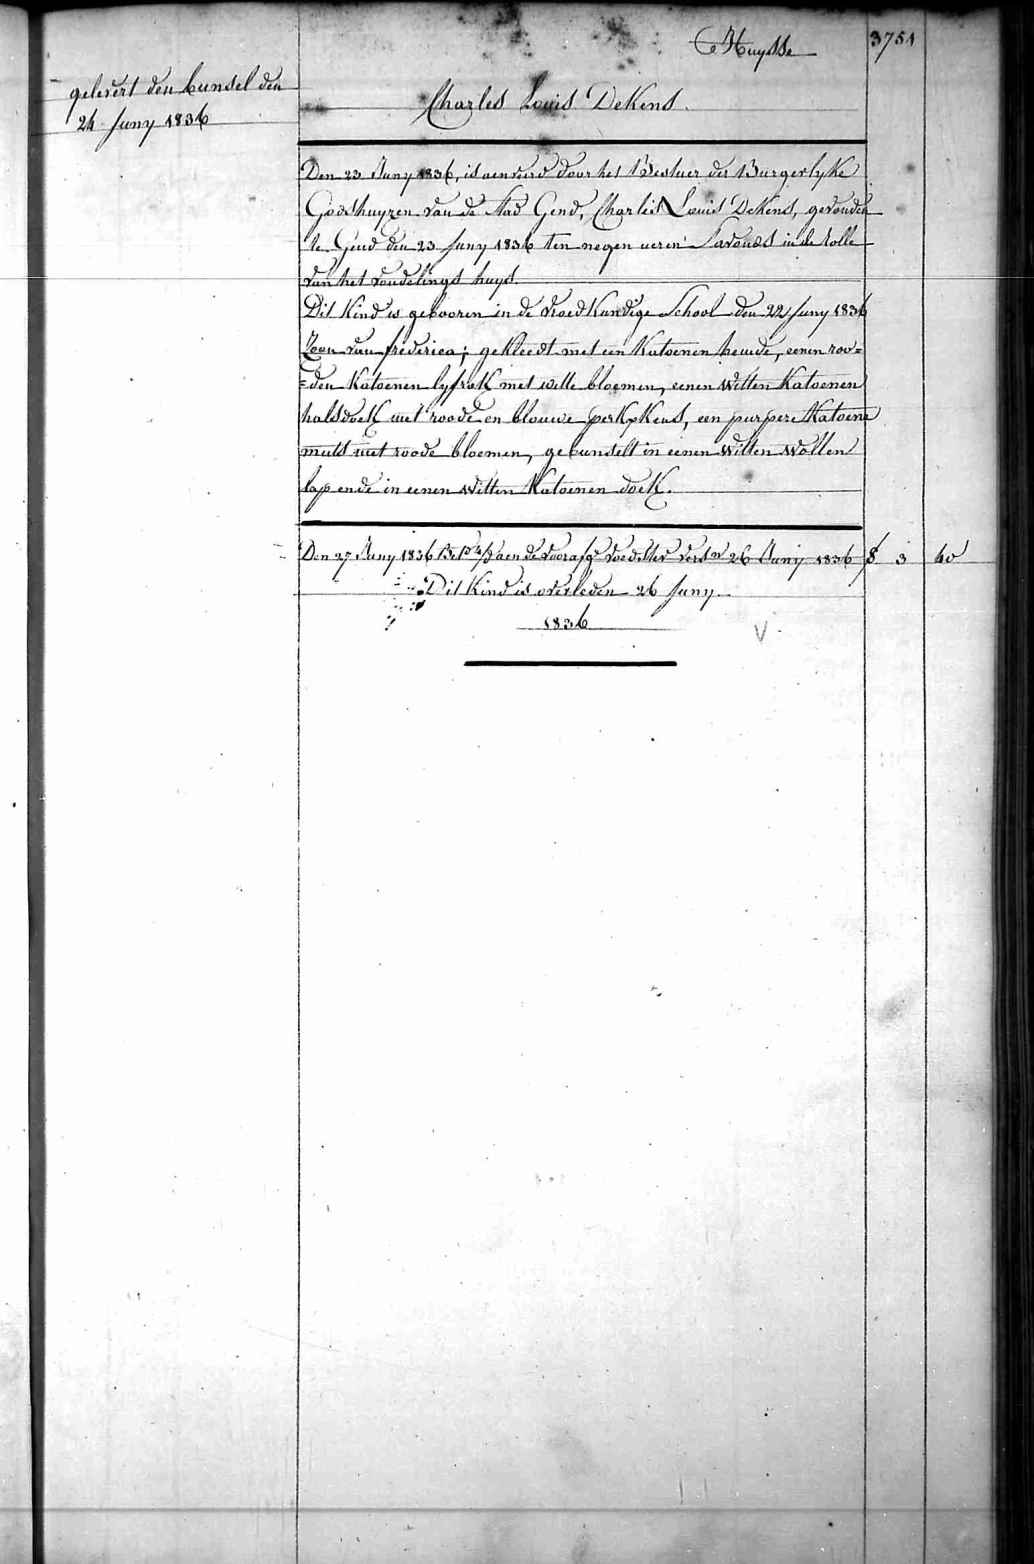 Huysse
3751
gelevert den bunsel den
24 Juny 1836
Charles Louis DeKens.
Den 23 Juny 1836, is aenveird door het Bestuer der Burgerlyke
Godshuyzen van de stad Gend, Charles Louis DeKens, gevonden
te Gend den 23 Juny 1836 ten negen ueren 's avonds in de rolle
van het vondelings huys.
Dit kind is gebooren in de vroedkundige School den 22 Juny 1836
Zoon van frederica; gekleedt met een katoenen hemde, eenen roo=
=den katoenen lyfrok met witte bloemen, eenen witten katoenen
halsdoek met roode en blouwe perkjkens, een purpere katoene
muts met roode bloemen, gebunselt in eenen witten wollen
lap ende in eenen witten katoenen doek.
Den 27 Juny 1836 aen de voorafg voedster 26 Juny 1836 3 40
Dit kind is overleden 26 Juny
1836